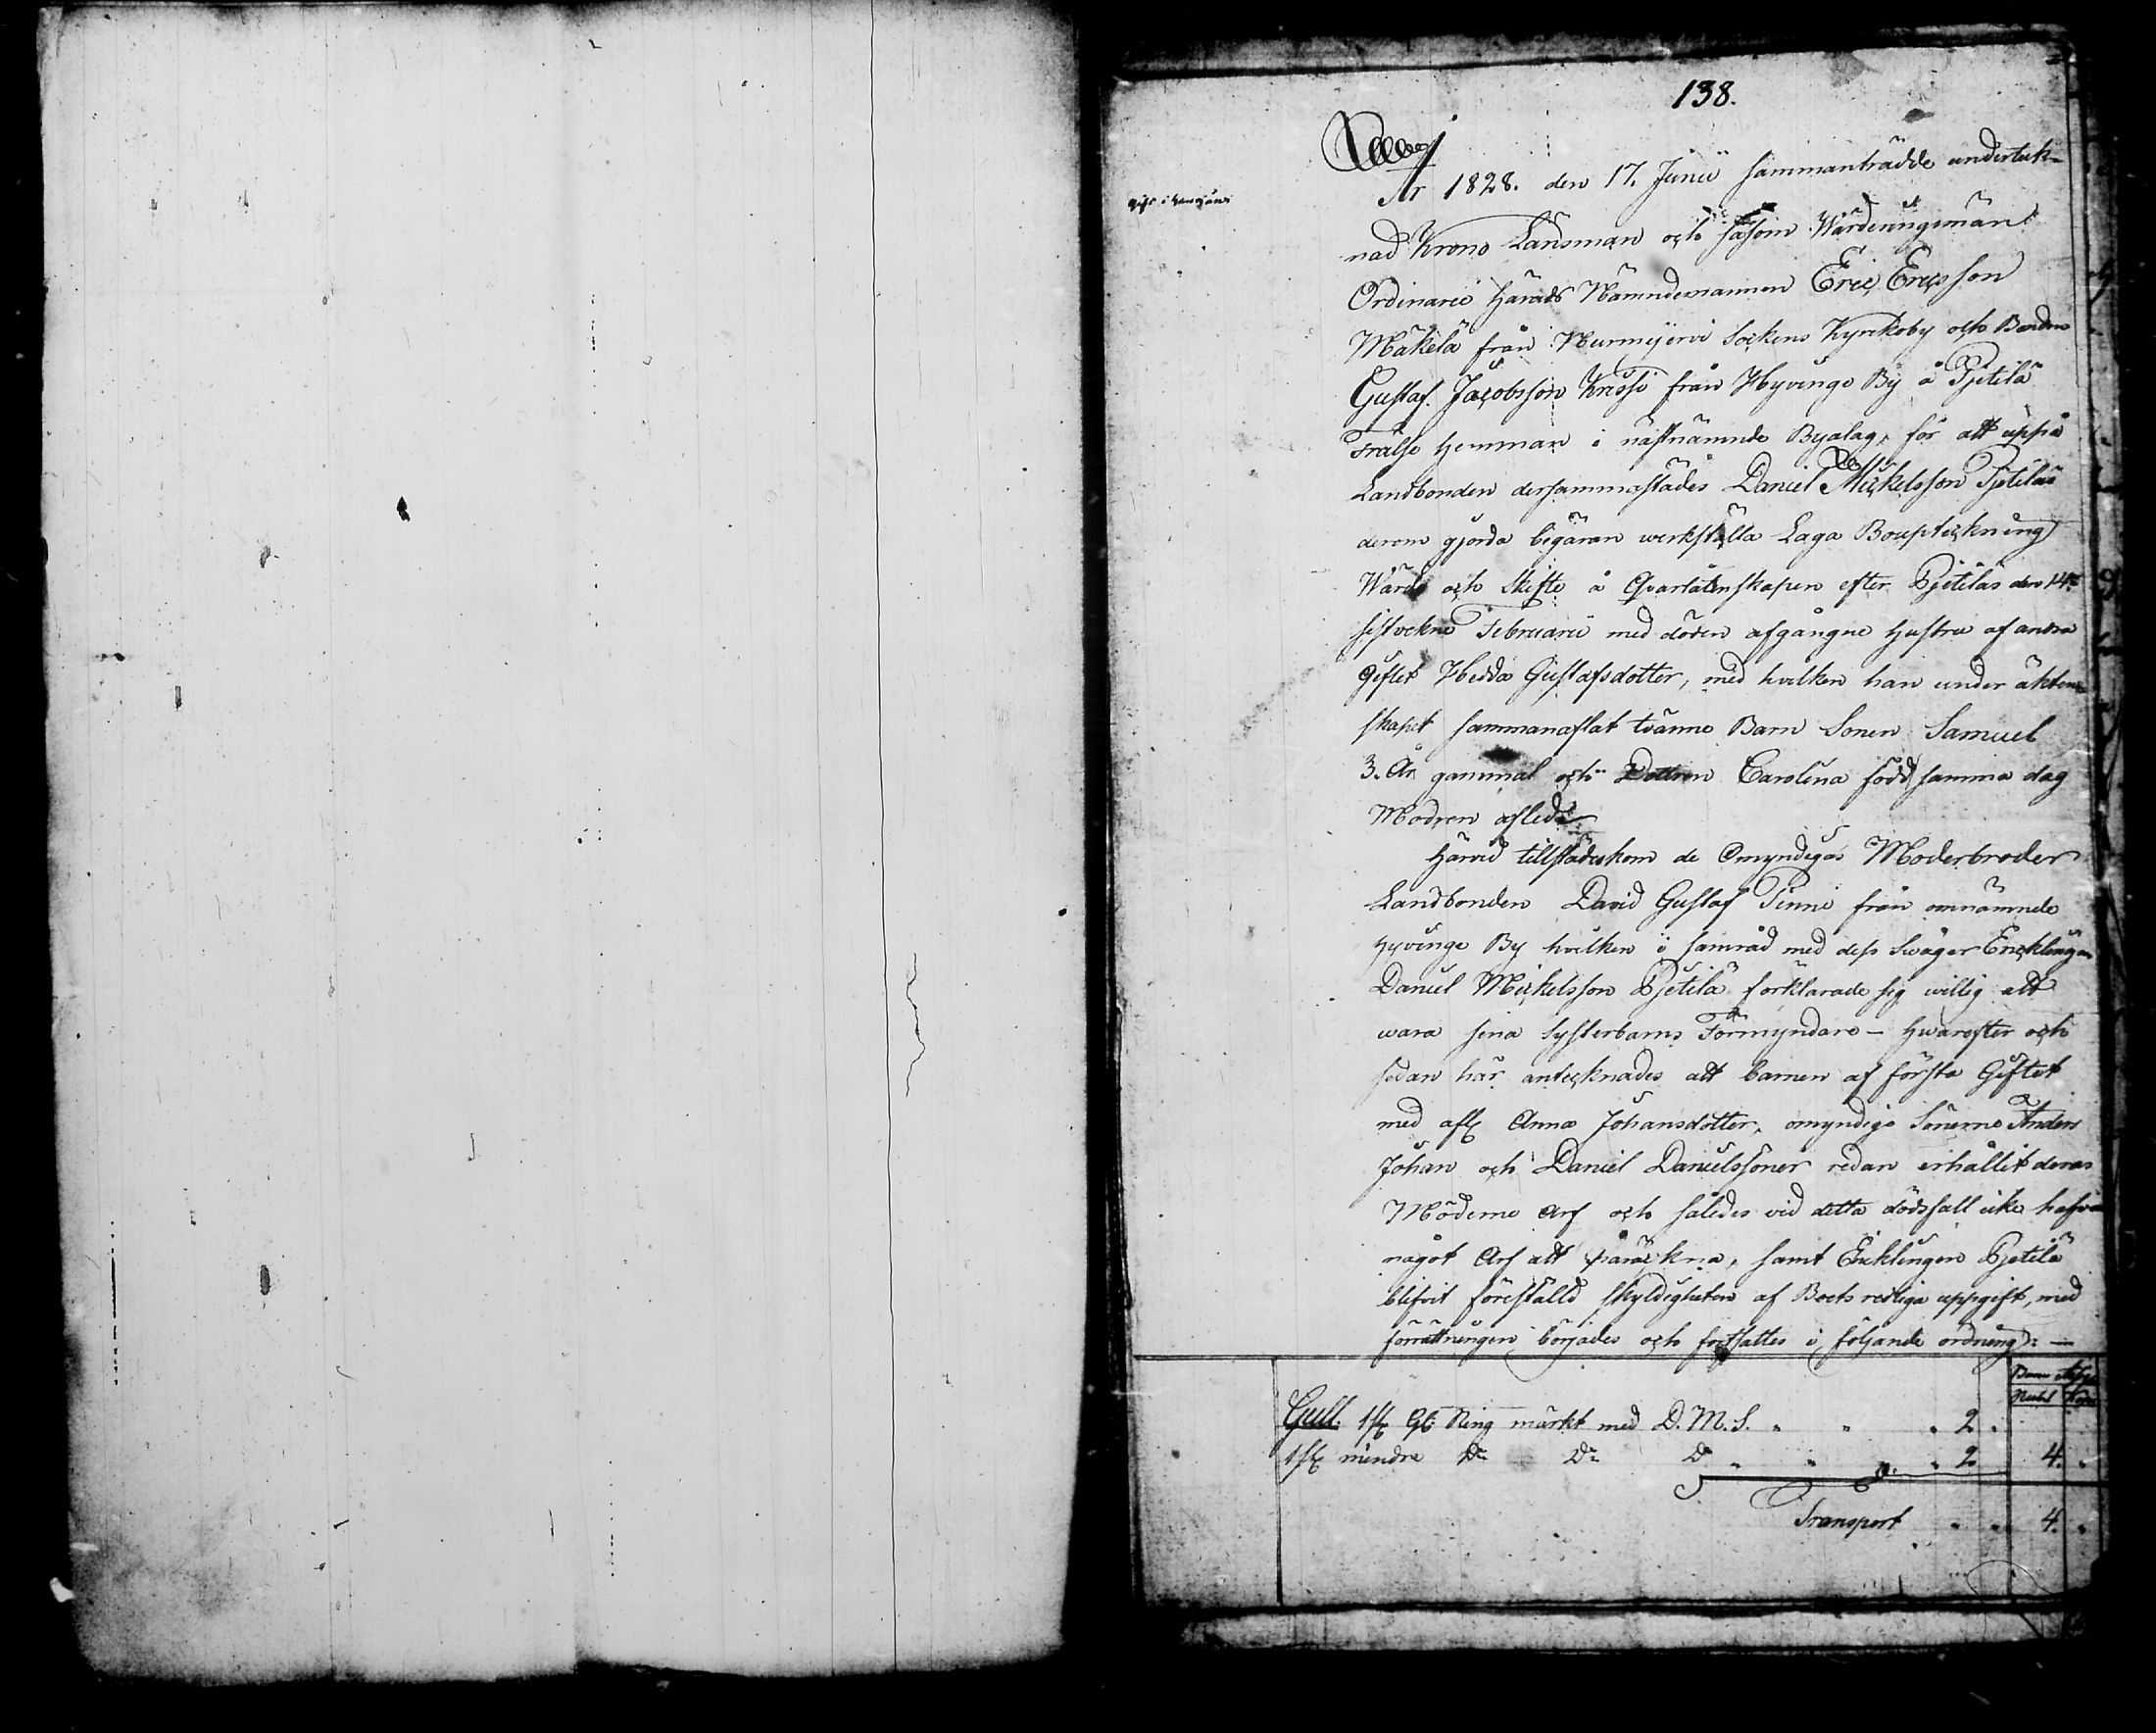 138.
År 1828. den 17. Junii sammanträdde underteck-
nad Krono Länsman och såsom Värderingsmän
Ordinarie Härads Nämndemannen Eric Ericsson
Mäkelä från Nurmijervi Sockens Kyrkoby och Bonden
Gustaf Jacobsson Krissi från Hyvinge By å Pjetilä
Frälse Hemman i nästnämnde Byalag, för att uppå
Landbonden dersammastädes Daniel Mickelsson Pjetiläs
derom gjorda begäran verkställa Laga Bouptekning
Värde och Skifte å Qvarlåtenskapen efter Pjetiläs den 14de
sistvekne Februarii med döden afgångne Hustru af andra
Giftet Hedda Gustafsdotter, med hvilken han under äkten-
skapet sammanaflat tvänne Barn Sonen Samuel
3. År gammal och Dottren Carolina född samma dag
Modren afled.
Härvid tillstädeskom de Omyndigas Moderbroder
Landbonden David Gustaf Pinni från omnämnde
Hyvinge By hvilken i samråd med dess Svåger Encklingen
Daniel Mickelsson Pjetilä förklarade sig villig att
vara sina Systerbarns Förmyndare – Hvarefter och
sedan här antecknades att barnen af första Giftet
med afl. Anna Johansdotter, omyndige Sönerne Anders
Johan och Daniel Danielssöner redan erhållit deras
Möderne Arf och således vid detta dödsfall icke hafva
något Arf att påräkna, samt Encklingen Pjetilä
blifvit föreställd skyldigheten af Boets redliga uppgift, med
förrättningen börjades och fortsattes i följande ordning: —
Banco Assign.
Rubel Kop.
Gull. 1 st. Gl. Ring märkt med D. M. S. " " " 2 "
1 st. mindre Do Do Do " " " 2 4. "
Transport " " 4. "